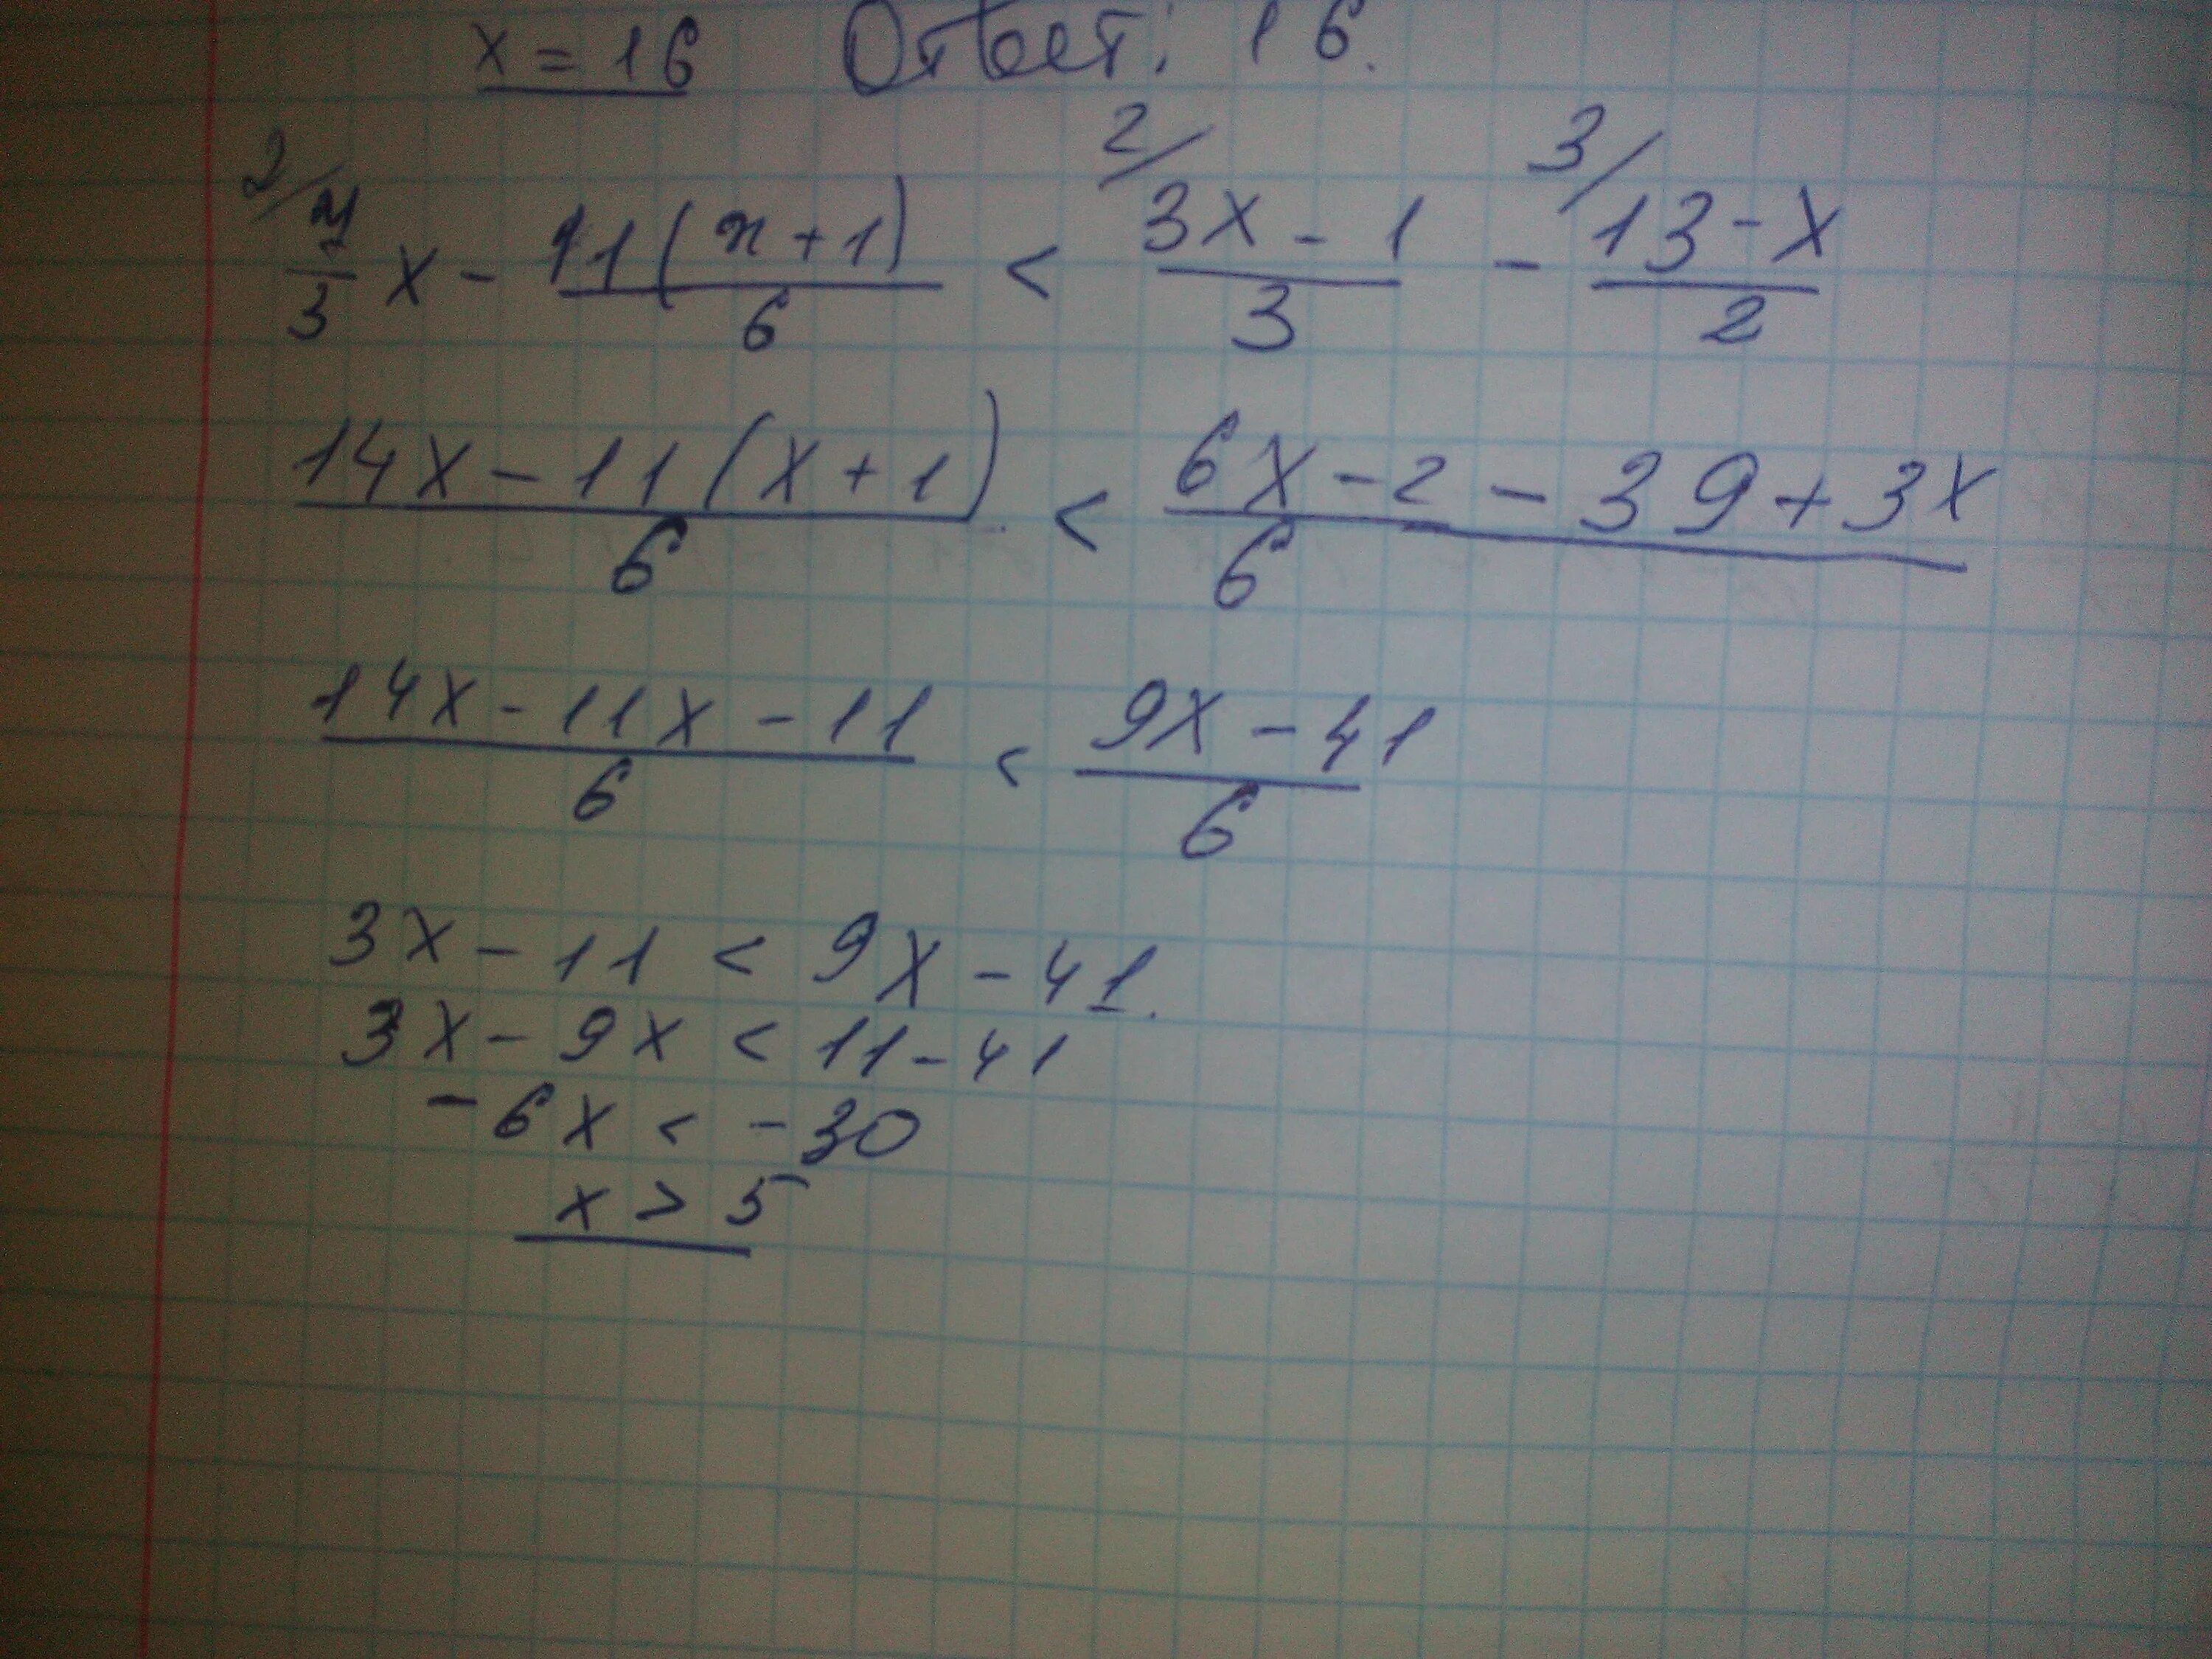 x = 16 Ответ: 16.
2/ 7/3 x - 11(x+1)/6 < 2/ 3x-1/3 - 3/ 13-x/2
14x - 11(x+1)/6 < 6x-2-39+3x/6
14x-11x-11/6 < 9x-41/6
3x-11 < 9x-41.
3x-9x < 11-41
-6x < -30
x > 5